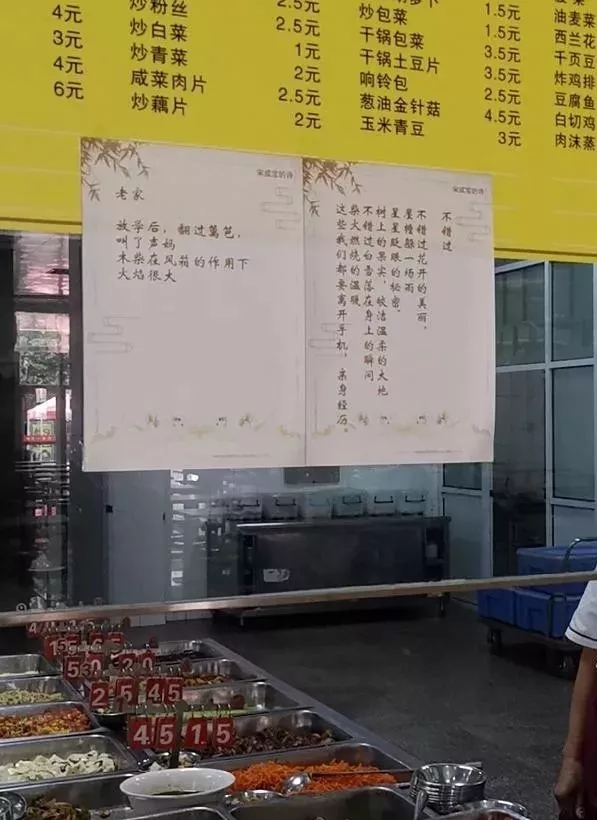 炒粉丝 2.5元 炒包菜 1.5元 西兰花
4元 炒白菜 1元 干锅包菜 3.5元 千页豆
3元 炒青菜 2元 干锅土豆片 3.5元 炸鸡排
4元 咸菜肉片 2.5元 响铃包 2.5元 豆腐鱼
6元 炒藕片 2元 葱油金针菇 4.5元 白切鸡
玉米青豆 3元 肉沫蒸
的诗
老家
放学后，翻过篱笆，
叫了声妈
木柴在风箱的作用下
火焰很大
的诗
不错过
不错过花开的美丽，
屋檐躲一场雨
星星眨眼的秘密，
树上的果实，皎洁温柔的大地
不错过白雪落在身上的瞬间
柴火燃烧的温暖
这些我们都要离开手机，亲身经历。
1 5
5 0 2 0
2 5 4 5
4 5 1 5